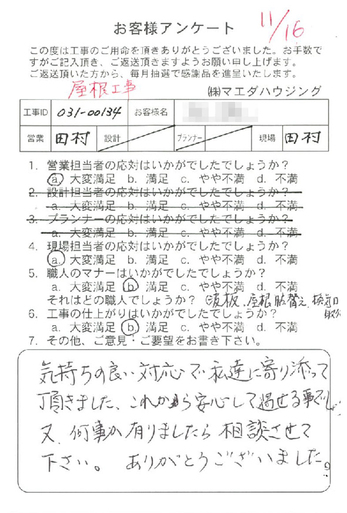 お客様アンケート 11/16
この度は工事のご用命を頂きありがとうございました。お手数で
すがご記入頂き、ご返送頂きますようお願い申し上げます。
ご返送頂いた方から、毎月抽選で感謝品を進呈いたします。
屋根工事 ㈱マエダハウジング
工事ID 031-00134 お客様名
営業 田村 設計 プランナー 現場 田村
1. 営業担当者の応対はいかがでしたでしょうか？
a. 大変満足 b. 満足 c. やや不満 d. 不満
2. 設計担当者の応対はいかがでしたでしょうか？
a. 大変満足 b. 満足 c. やや不満 d. 不満
3. プランナーの応対はいかがでしたでしょうか？
a. 大変満足 b. 満足 c. やや不満 d. 不満
4. 現場担当者の応対はいかがでしたでしょうか？
a. 大変満足 b. 満足 c. やや不満 d. 不満
5. 職人のマナーはいかがでしたでしょうか？
a. 大変満足 b. 満足 c. やや不満 d. 不満
それはどの職人でしょうか？ 屋根
6. 工事の仕上がりはいかがでしたでしょうか？
a. 大変満足 b. 満足 c. やや不満 d. 不満
7. その他、ご意見・ご要望をお書き下さい。
気持ちの良い対応で私達に寄り添って
頂きました、これから安心して過せる事でしょ
又、何事か有りましたら相談させて
下さい。 ありがとうございました。